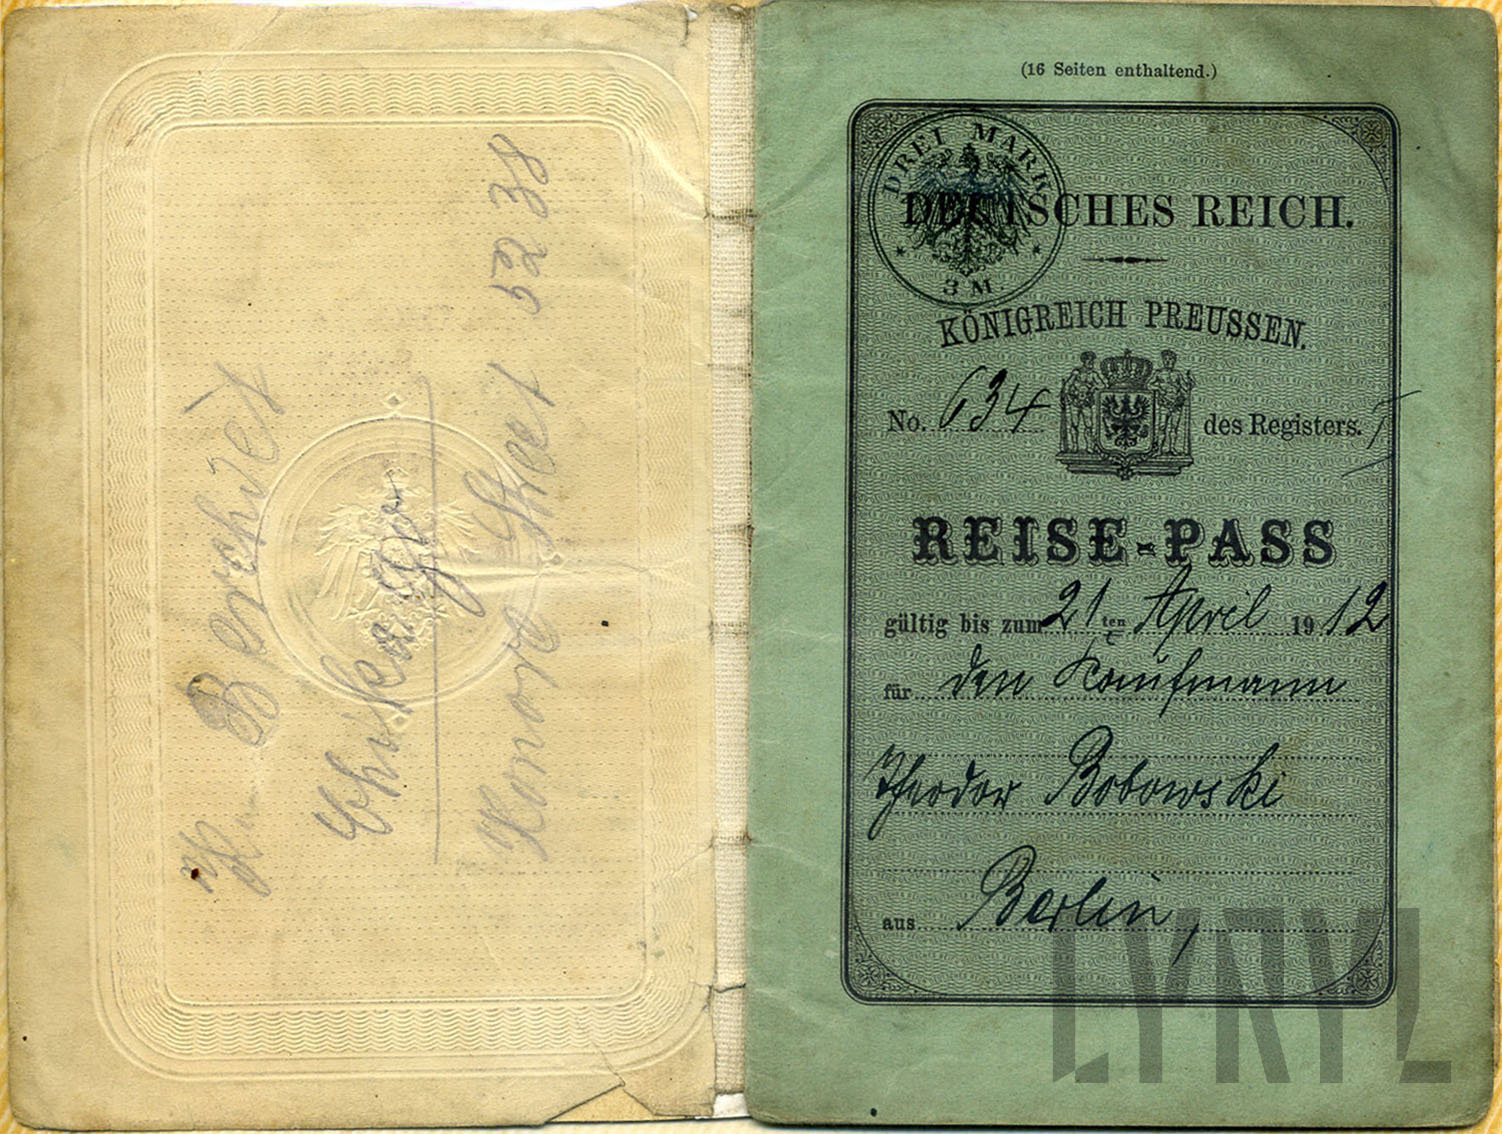 Chikago
Street 52 38
(16 Seiten enthaltend.)
DREI MARK
3 M.
DEUTSCHES REICH.
KÖNIGREICH PREUSSEN.
No. 634 des Registers.
REISE-PASS
gültig bis zum 21ten April 1912
für den Kaufmann
Theodor Bobowski
aus Berlin,
LYRYL